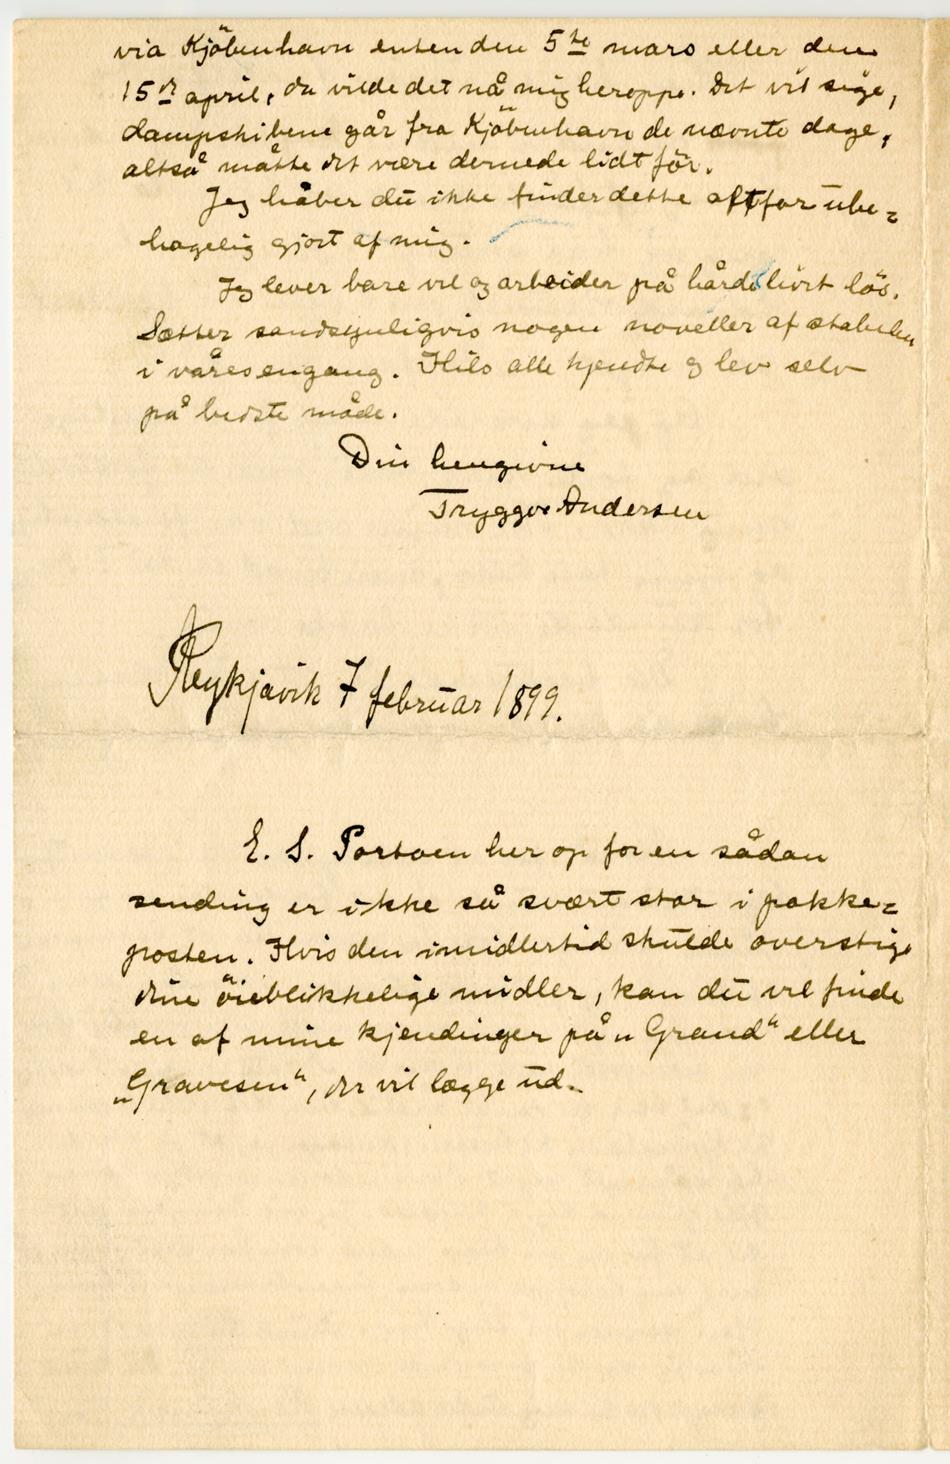 via Kjöbenhavn enten den 5te mars eller den
15de april, da vilde det nå mig heroppe. Det vil sige,
dampskibene går fra Kjöbenhavn de nævnte dage,
altså måtte det være dernede lidt för.
Jeg håber du ikke finder dette altfor ube=
hagelig gjort af mig.
Jeg lever bare vel og arbeider på hårdt livet lös.
Sætter sandsynligvis nogen noveller af stabelen
i våres engang. Hils alle kjendte og lev selv
på bedste måde.
Din hengivne
Tryggve Andersen
Reykjavik 7 februar 1899.
E. S. Portoen her op for en sådan
sending er ikke så svært stor i pakke=
posten. Hvis den imidlertid skulde overstige
dine öieblikkelige midler, kan du vel finde
en af mine kjendinger på „Grand“ eller
„Gravesen“, der vil lægge ud.